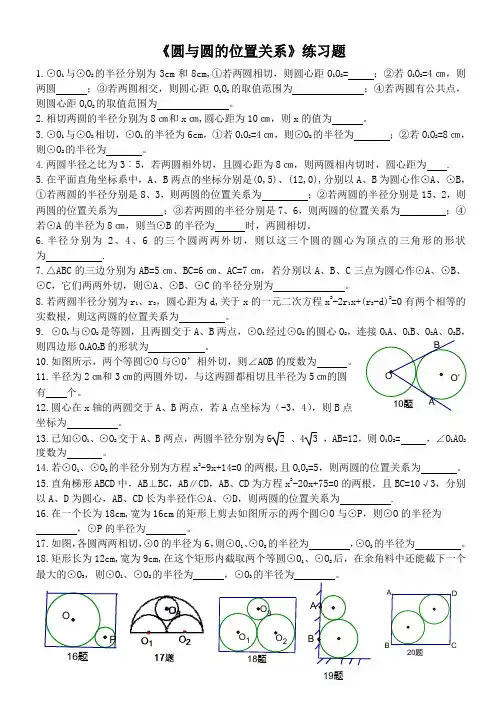 《圆与圆的位置关系》练习题
1.⊙O₁与⊙O₂的半径分别为3cm和8cm,①若两圆相切，则圆心距O₁O₂= ；②若O₁O₂=4㎝，则
两圆 ；③若两圆相交，则圆心距O₁O₂的取值范围为 ；④若两圆有公共点，
则圆心距O₁O₂的取值范围为 。
2.相切两圆的半径分别为8㎝和x㎝,圆心距为10㎝，则x的值为 。
3.⊙O₁与⊙O₂相切，⊙O₁的半径为6cm，①若O₁O₂=4㎝，则⊙O₂的半径为 ；②若O₁O₂=8㎝，
则⊙O₂的半径为 。
4.两圆半径之比为3︰5，若两圆相外切，且圆心距为8㎝，则两圆相内切时，圆心距为 .
5.在平面直角坐标系中，A、B两点的坐标分别是(0,5)、(12,0),分别以A、B为圆心作⊙A、⊙B，
①若两圆的半径分别是8、3，则两圆的位置关系为 ；②若两圆的半径分别是15、2，则
两圆的位置关系为 ；③若两圆的半径分别是7、6，则两圆的位置关系为 ；④
若⊙A的半径为8㎝，则当⊙B的半径为 时，两圆相切。
6.半径分别为2、4、6的三个圆两两外切，则以这三个圆的圆心为顶点的三角形的形状
为 .
7.△ABC的三边分别为AB=5㎝、BC=6㎝、AC=7㎝，若分别以A、B、C三点为圆心作⊙A、⊙B、
⊙C，它们两两外切，则⊙A、⊙B、⊙C的半径分别为 。
8.若两圆半径分别为r₁、r₂，圆心距为d,关于x的一元二次方程x²-2r₁x+(r₂-d)²=0有两个相等的
实数根，则这两圆的位置关系为 。
9. ⊙O₁与⊙O₂是等圆，且两圆交于A、B两点，⊙O₁经过⊙O₂的圆心O₂，连接O₁A、O₁B、O₂A、O₂B，
则四边形O₁AO₂B的形状为 。
10.如图所示，两个等圆⊙O与⊙O′相外切，则∠AOB的度数为 。
11.半径为2㎝和3㎝的两圆外切，与这两圆都相切且半径为5㎝的圆
有 个。
12.圆心在x轴的两圆交于A、B两点，若A点坐标为（-3，4），则B点
坐标为 。
B
O
O′
A
10题
13.已知⊙O₁、⊙O₂交于A、B两点，两圆半径分别为6√2 、4√3 ，AB=12，则O₁O₂= ，∠O₁AO₂
度数为 。
14.若⊙O₁、⊙O₂的半径分别为方程x²-9x+14=0的两根,且O₁O₂=5，则两圆的位置关系为 。
15.直角梯形ABCD中，AB⊥BC，AB∥CD，AB、CD为方程x²-20x+75=0的两根，且BC=10√3，分别
以A、D为圆心，AB、CD长为半径作⊙A、⊙D，则两圆的位置关系为 .
16.在一个长为18cm,宽为16cm的矩形上剪去如图所示的两个圆⊙O与⊙P，则⊙O的半径为
，⊙P的半径为 。
17.如图,各圆两两相切,⊙O的半径为6,则⊙O₁、⊙O₂的半径为 ,⊙O₃的半径为 。
18.矩形长为12cm,宽为9cm,在这个矩形内截取两个等圆⊙O₁、⊙O₂后，在余角料中还能截下一个
最大的⊙O₃，则⊙O₁、⊙O₂的半径为 ，⊙O₃的半径为 。
O
P
16题
O₃
O₁ O₂
17题
O₃
O₁ O₂
18题
A
B
19题
A D
B C
20题